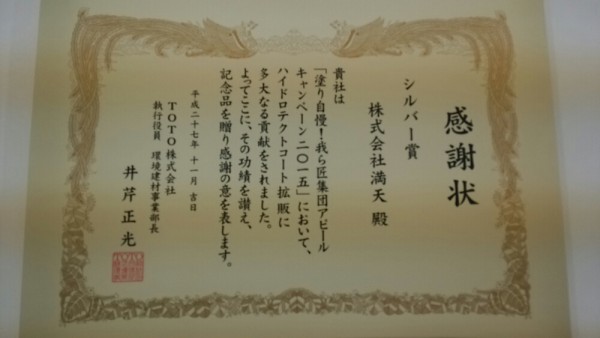 感謝状
シルバー賞
株式会社満天 殿
貴社は
「塗り自慢!我ら匠集団アピール
キャンペーン二〇一五」において、
ハイドロテクトコート拡販に
多大なる貢献をされました。
よってここに、その功績を讃え、
記念品を贈り感謝の意を表します。
平成二十七年 十一月 吉日
TOTO株式会社
執行役員 環境建材事業部長
井芹正光